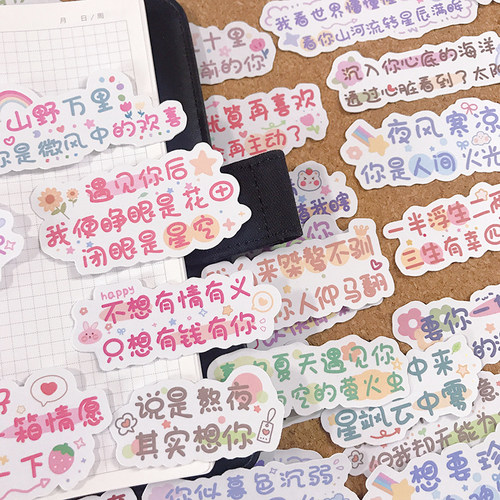 月 日/周
十里
前的你
我看世界懵懂
看你山河流转星辰落眸
沉入你心底的海洋
通过心脏看到了太阳
山野万里
你是微风中的欢喜
就算再喜欢
再主动了
夜风寒凉
你是人间火光
遇见你后
我便睁眼是花田
闭眼是星空
一半浮生一
三生有幸四
来桀骜不驯
你人仰马翻
happy
不想有情有义
只想有钱有你
夏天遇见你
空的萤火虫
要你一
中来
星飒云中
箱情愿
一下
说是熬夜
其实想你
你似暮色沉弱
但我却无能为
想要珍